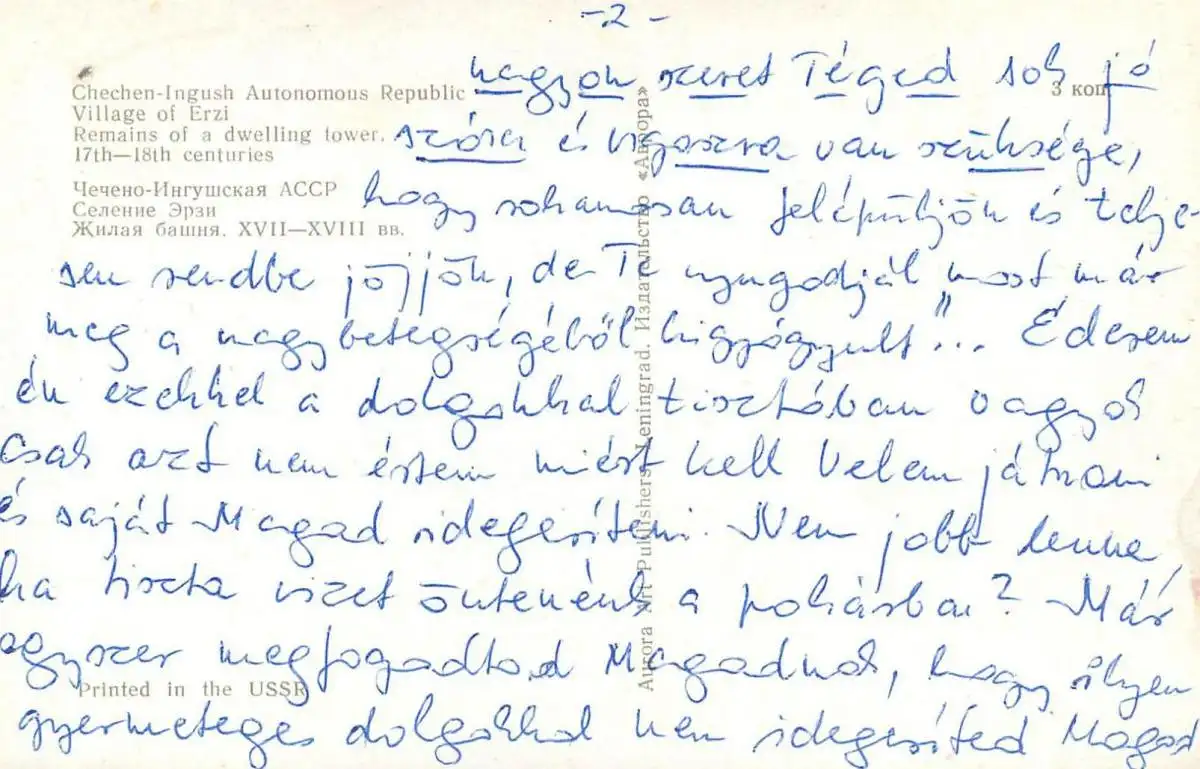 -2-
nagyon szeret Téged sok jó
Chechen-Ingush Autonomous Republic
3 коп.
Village of Erzi
Remains of a dwelling tower.
17th—18th centuries
szóra és vigaszra van szüksége,
Чечено-Ингушская АССР
Селение Эрзи
Жилая башня. XVII—XVIII вв.
hogy rohamosan felépüljön és telje-
sen rendbe jöjjön, de Te nyugodjál most már
meg a nagybetegségéből kigyógyult"... Édesem
én ezekkel a dolgokkal tisztában vagyok
csak azt nem értem miért kell Velem játszani
és saját Magad idegesíteni. Nem jobb lenne,
ha tiszta vizet öntenénk a pohárba? Már
egyszer megfogadtad Magadnak, hogy ilyen
Printed in the USSR
gyermeteges dolgokkal nem idegesíted Magad
Aurora Art Publishers. Leningrad. Издательство «Аврора»